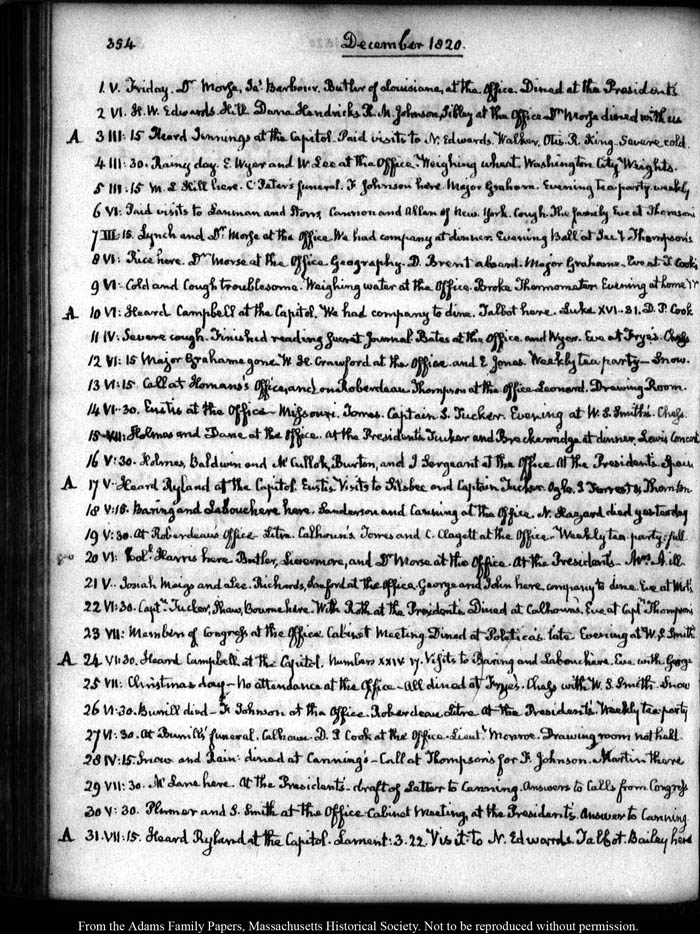 354 December 1820.
1 V. Friday. Dr Morse, Jas Barbour. Butler of Louisiana, at the Office. Dined at the Presidents
2 VI. H. W. Edwards. Hill Dana Hendricks R. M. Johnson, Sibley at the Office Dr Morse dined with us
A 3 III:15 Heard Jennings at the Capitol. Paid visits to N. Edwards. Walker. Otis. R. King. Severe cold.
4 III:30. Rainy day. E. Wyer and W. Lee at the Office. Weighing wheat. Washington City Weights.
5 III:15 M. L. Hill here. C Peter's funeral. F Johnson here Major Graham. Evening tea party weekly
6 VI: Paid visits to Lanman and Storrs, Cannon and Allen of New York. Cough. The family Eve at Thomson
7 III:15. Lynch and Dr Morse at the Office. We had company at dinner. Evening Ball at Thompson's
8 VI: Rice here. Dr Morse at the Office. Geography. D. Brent absent. Major Graham. Eve at J. Cook's
9 VI: Cold and Cough troublesome. Weighing water at the Office. Broke Thermometer Evening at home
A 10 VI: Heard Campbell at the Capitol. We had company to dine. Talbot here. Luke. XVI. 31. D. P. Cook
11 IV: Severe cough. Finished reading Secret Journal Bates at the Office. and Wyer. Eve at Frye's. Chess
12 VI:15 Major Graham gone. W. H. Crawford at the Office and E Jones. Weekly tea party — Snow.
13 VI:15. Call at Homans's Office, and on Roberdeau. Thompson at the Office Leonard. Drawing Room.
14 VI:30. Eustis at the Office — Missouri. Jones. Captain S. Tucker. Evening at W. S. Smith's. Chess.
15 VII: Holmes and Dane at the Office. At the Presidents Tucker and Breckenridge at dinner, Lewis Concert
16 V:30. Holmes, Baldwin and McCulloh, Burton, and J Sergeant at the Office. At the Presidents.
A 17 V. Heard Ryland at the Capitol. Eustis Visits to Silsbee and Captain Tucker. Ogle. Forrest & Thornton
18 V:18. Baring and Labouchere here. Sanderson and Canning at the Office. N. Hazard died yesterday
19 V:30. At Roberdeau's Office — Litre. Calhoun's Jones and C. Clagett at the Office. Weekly tea party: full
20 VI: Col. Harris here. Butler, Livermore, and Dr Morse at the Office. At the Presidents — Mrs A. ill
21 V. Josiah Meigs and Lee. Richards, Sanford at the Office. George and John here, company to dine. Eve at
22 VI:30. Captn Tucker, Shaw, Bourne here. With Roth at the Presidents. Dined at Calhoun's. Eve at Captn Thompson's
23 VII: Members of Congress at the Office Cabinet Meeting. Dined at Poletica's. late Evening at W. S. Smith
A 24 VI:30. Heard Campbell at the Capitol. Numbers XXIV 17. Visits to Baring and Labouchere. Eve with George
25 VII: Christmas day — No attendance at the Office — All dined at Frye's. Chess with W. S. Smith. Snow
26 VI:30. Burrill died — F. Johnson at the Office. Roberdeau. Litre. At the Presidents. Weekly tea party
27 VI:30. At Burrill's funeral. Calhoun. D. P Cook at the Office. Lieutt Monroe. Drawing room not held.
28 IV:15. Snow and Rain: dined at Canning's — Call at Thompson's for F. Johnson. Martin there
29 VII:30. McLane here. At the Presidents — draft of Letter to Canning. Answers to Calls from Congress
30 V:30. Plumer and S. Smith at the Office Cabinet Meeting, at the Presidents. Answer to Canning.
A 31. VII:15. Heard Ryland at the Capitol. Lament: 3.22. Visit to N. Edwards. Talbot. Bailey here
From the Adams Family Papers, Massachusetts Historical Society. Not to be reproduced without permission.